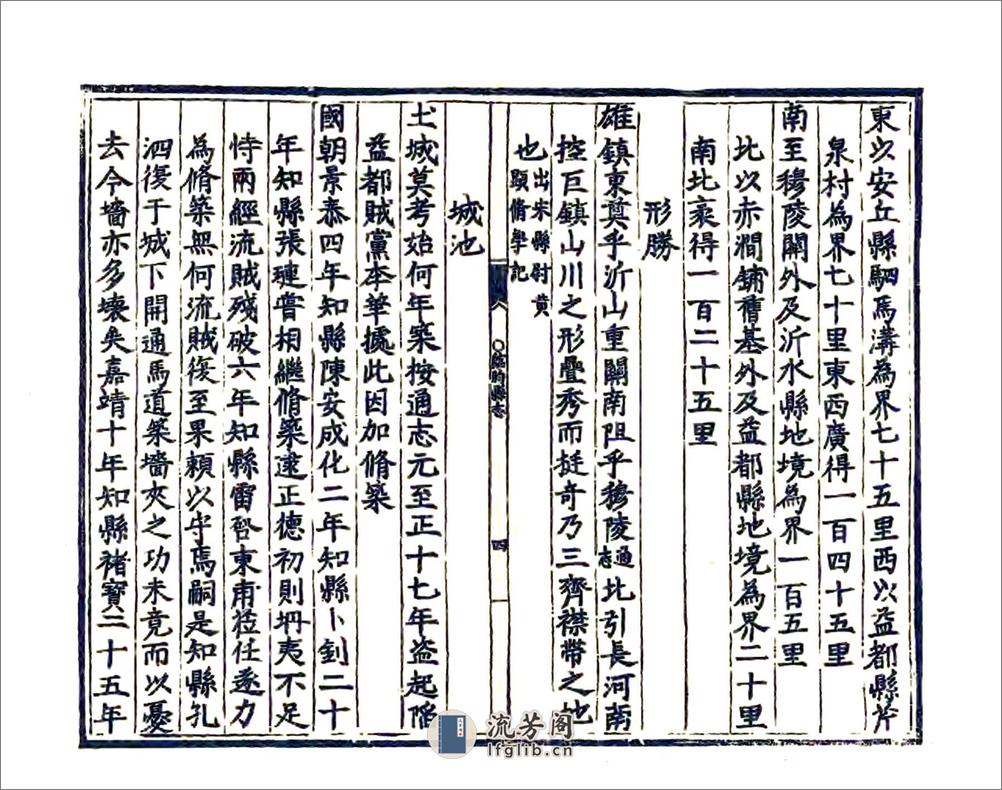 東以安丘縣駟馬溝為界七十五里西以益都縣斧
泉村為界七十里東西廣得一百四十五里
南至穆陵關外及沂水縣地境為界一百五里
北以赤澗鋪舊基外及益都縣地境為界二十里
南北袤得一百二十五里
形勝
雄鎮東奠乎沂山重關南阻乎穆陵通志北引長河南
控巨鎮山川之形疊秀而挺奇乃三齊襟帶之地
也出宋縣尉黄顕脩學記
○臨朐縣志
四
城池
土城莫考始何年築按通志元至正十七年盗起陷
益都賊黨李華據此因加脩築
國朝景泰四年知縣陳安成化二年知縣卜釗二十
年知縣張璉甞相繼脩築逮正德初則坍夷不足
恃兩經流賊殘破六年知縣雷啓東甫蒞任遂力
為脩築無何流賊復至果頼以守焉嗣是知縣孔
泗復于城下開通馬道築墻夾之功未竟而以憂
去今墻亦多壊矣嘉靖十年知縣褚寳二十五年
流芳阁
lfglib.cn